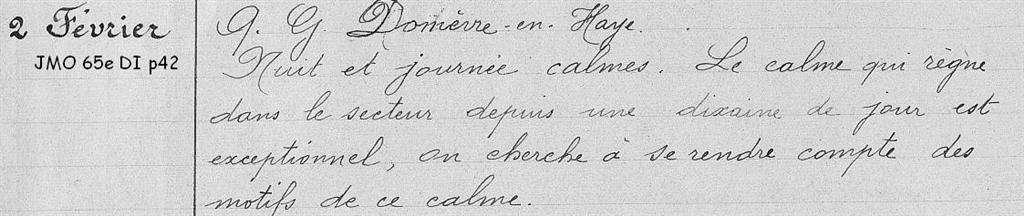 2 Février
JMO 65e DI p42
Q. G. Domèvre-en-Haye.
Nuit et journée calmes. Le calme qui règne
dans le secteur depuis une dixaine de jour est
exceptionnel, on cherche à se rendre compte des
motifs de ce calme.